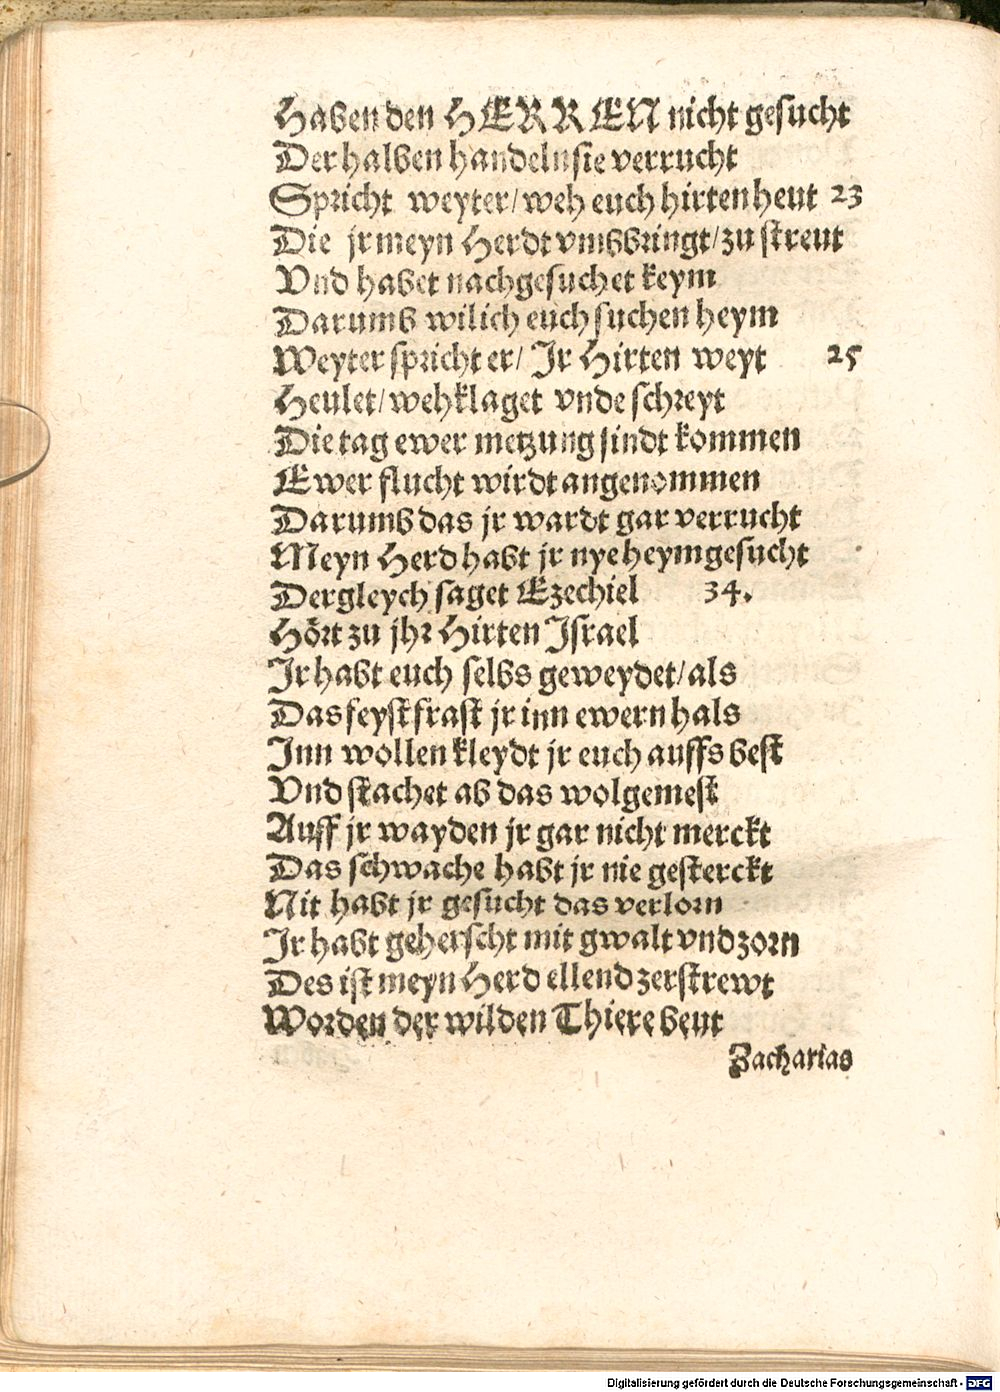 Haben den HERREN nicht gesucht
Derhalben handeln sie verrucht
Spricht weyter/ weh euch hirten heut 23
Die jr meyn Herdt vmbbringt/ zu streut
Vnd habet nachgesuchet keym
Darumb wil ich euch suchen heym
Weyter spricht er/ Jr Hirten weyt 25
Heulet/ wehklaget vnde schreyt
Die tag ewer metzung sindt kommen
Ewer flucht wirdt angenommen
Darumb das jr wardt gar verrucht
Meyn Herd habt jr nye heymgesucht
Dergleych saget Ezechiel 34.
Hört zu jhr Hirten Jsrael
Jr habt euch selbs geweydet/ als
Das feyst frast jr inn ewern hals
Jnn wollen kleydt jr euch auffs best
Vnd stachet ab das wolgemest
Auff jr wayden jr gar nicht merckt
Das schwache habt jr nie gesterckt
Nit habt jr gesucht das verlorn
Jr habt geherscht mit gwalt vnd zorn
Des ist meyn Herd ellend zerstrewt
Worden der wilden Thiere beut
Zacharias
Digitalisierung gefördert durch die Deutsche Forschungsgemeinschaft - DFG